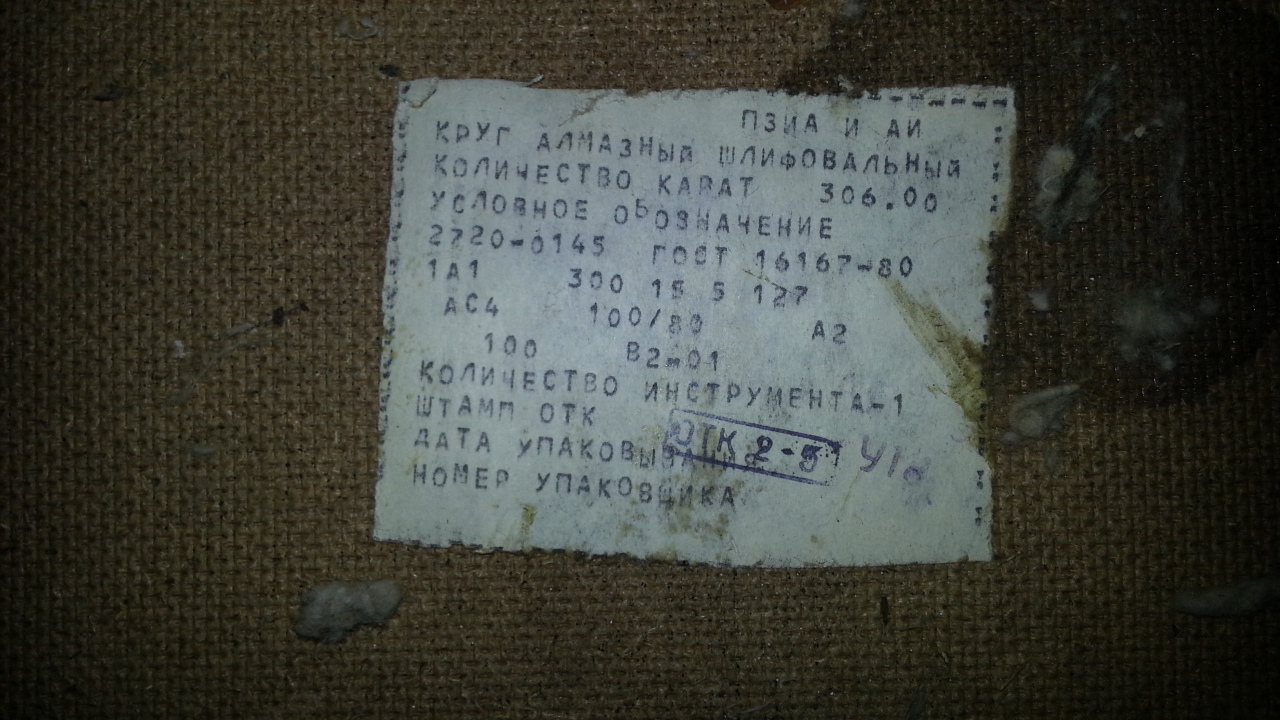 ПЗИА И АИ
КРУГ АЛМАЗНЫЙ ШЛИФОВАЛЬНЫЙ
КОЛИЧЕСТВО КАРАТ 306.00
УСЛОВНОЕ ОБОЗНАЧЕНИЕ
2720-0145 ГОСТ 16167-80
1А1 300 15 5 127
АС4 100/80 А2
100 В2-01
КОЛИЧЕСТВО ИНСТРУМЕНТА-1
ШТАМП ОТК
ОТК 2-5
ДАТА УПАКОВЫВАНИЯ
НОМЕР УПАКОВЩИКА